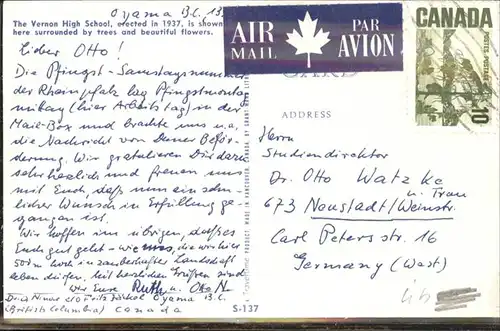 Oyama B.C. 13
The Vernon High School, erected in 1937, is shown
here surrounded by trees and beautiful flowers.
Lieber Otto!
Die Pfingst-Samstagsnummer
der Rheinpfalz lag Pfingstmontag
mittag (hier Arbeitstag) in der
Mail-Box und brachte uns u.a.
die Nachricht von Deiner Beför-
derung. Wir gratulieren Dir dazu
sehr herzlich und freuen uns
mit Euch, daß nun ein sehn-
licher Wunsch in Erfüllung ge-
gangen ist.
Wir hoffen im übrigen, daß es
Euch gut geht - wie uns, die wir hier
500 m hoch in zauberhafter Landschaft
leben dürfen. Mit herzlichen Grüßen sind
wir Eure Ruth u. Otto N.
Oyama B.C.
(British Columbia) Canada
AIR MAIL
PAR AVION
CANADA
POSTES POSTAGE
10
CARD
ADDRESS
Herrn
Studiendirektor
Dr. Otto Watzke
u. Frau
673 Neustadt/Weinstr.
Carl Peters str. 16
Germany (West)
S-137